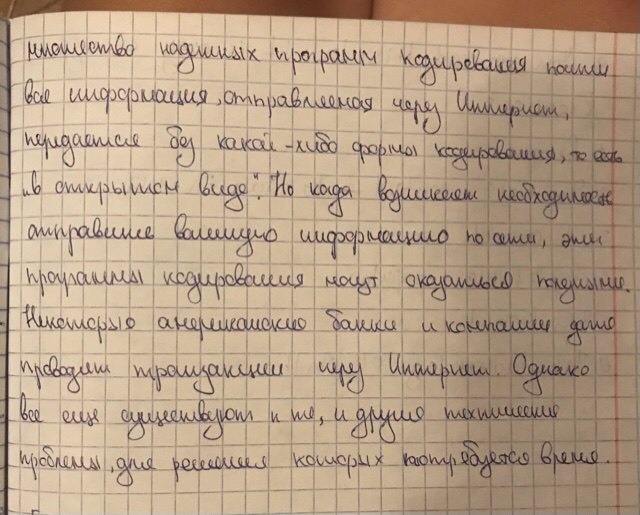 множество надежных программ кодирования почти
вся информация, отправляемая через Интернет,
передается без какой-либо формы кодирования, то есть
"в открытом виде". Но когда возникает необходимость
отправить важную информацию по сети, эти
программы кодирования могут оказаться полезными.
Некоторые американские банки и компании даже
проводят транзакции через Интернет. Однако
все еще существуют и те, и другие технические
проблемы, для решения которых потребуется время.